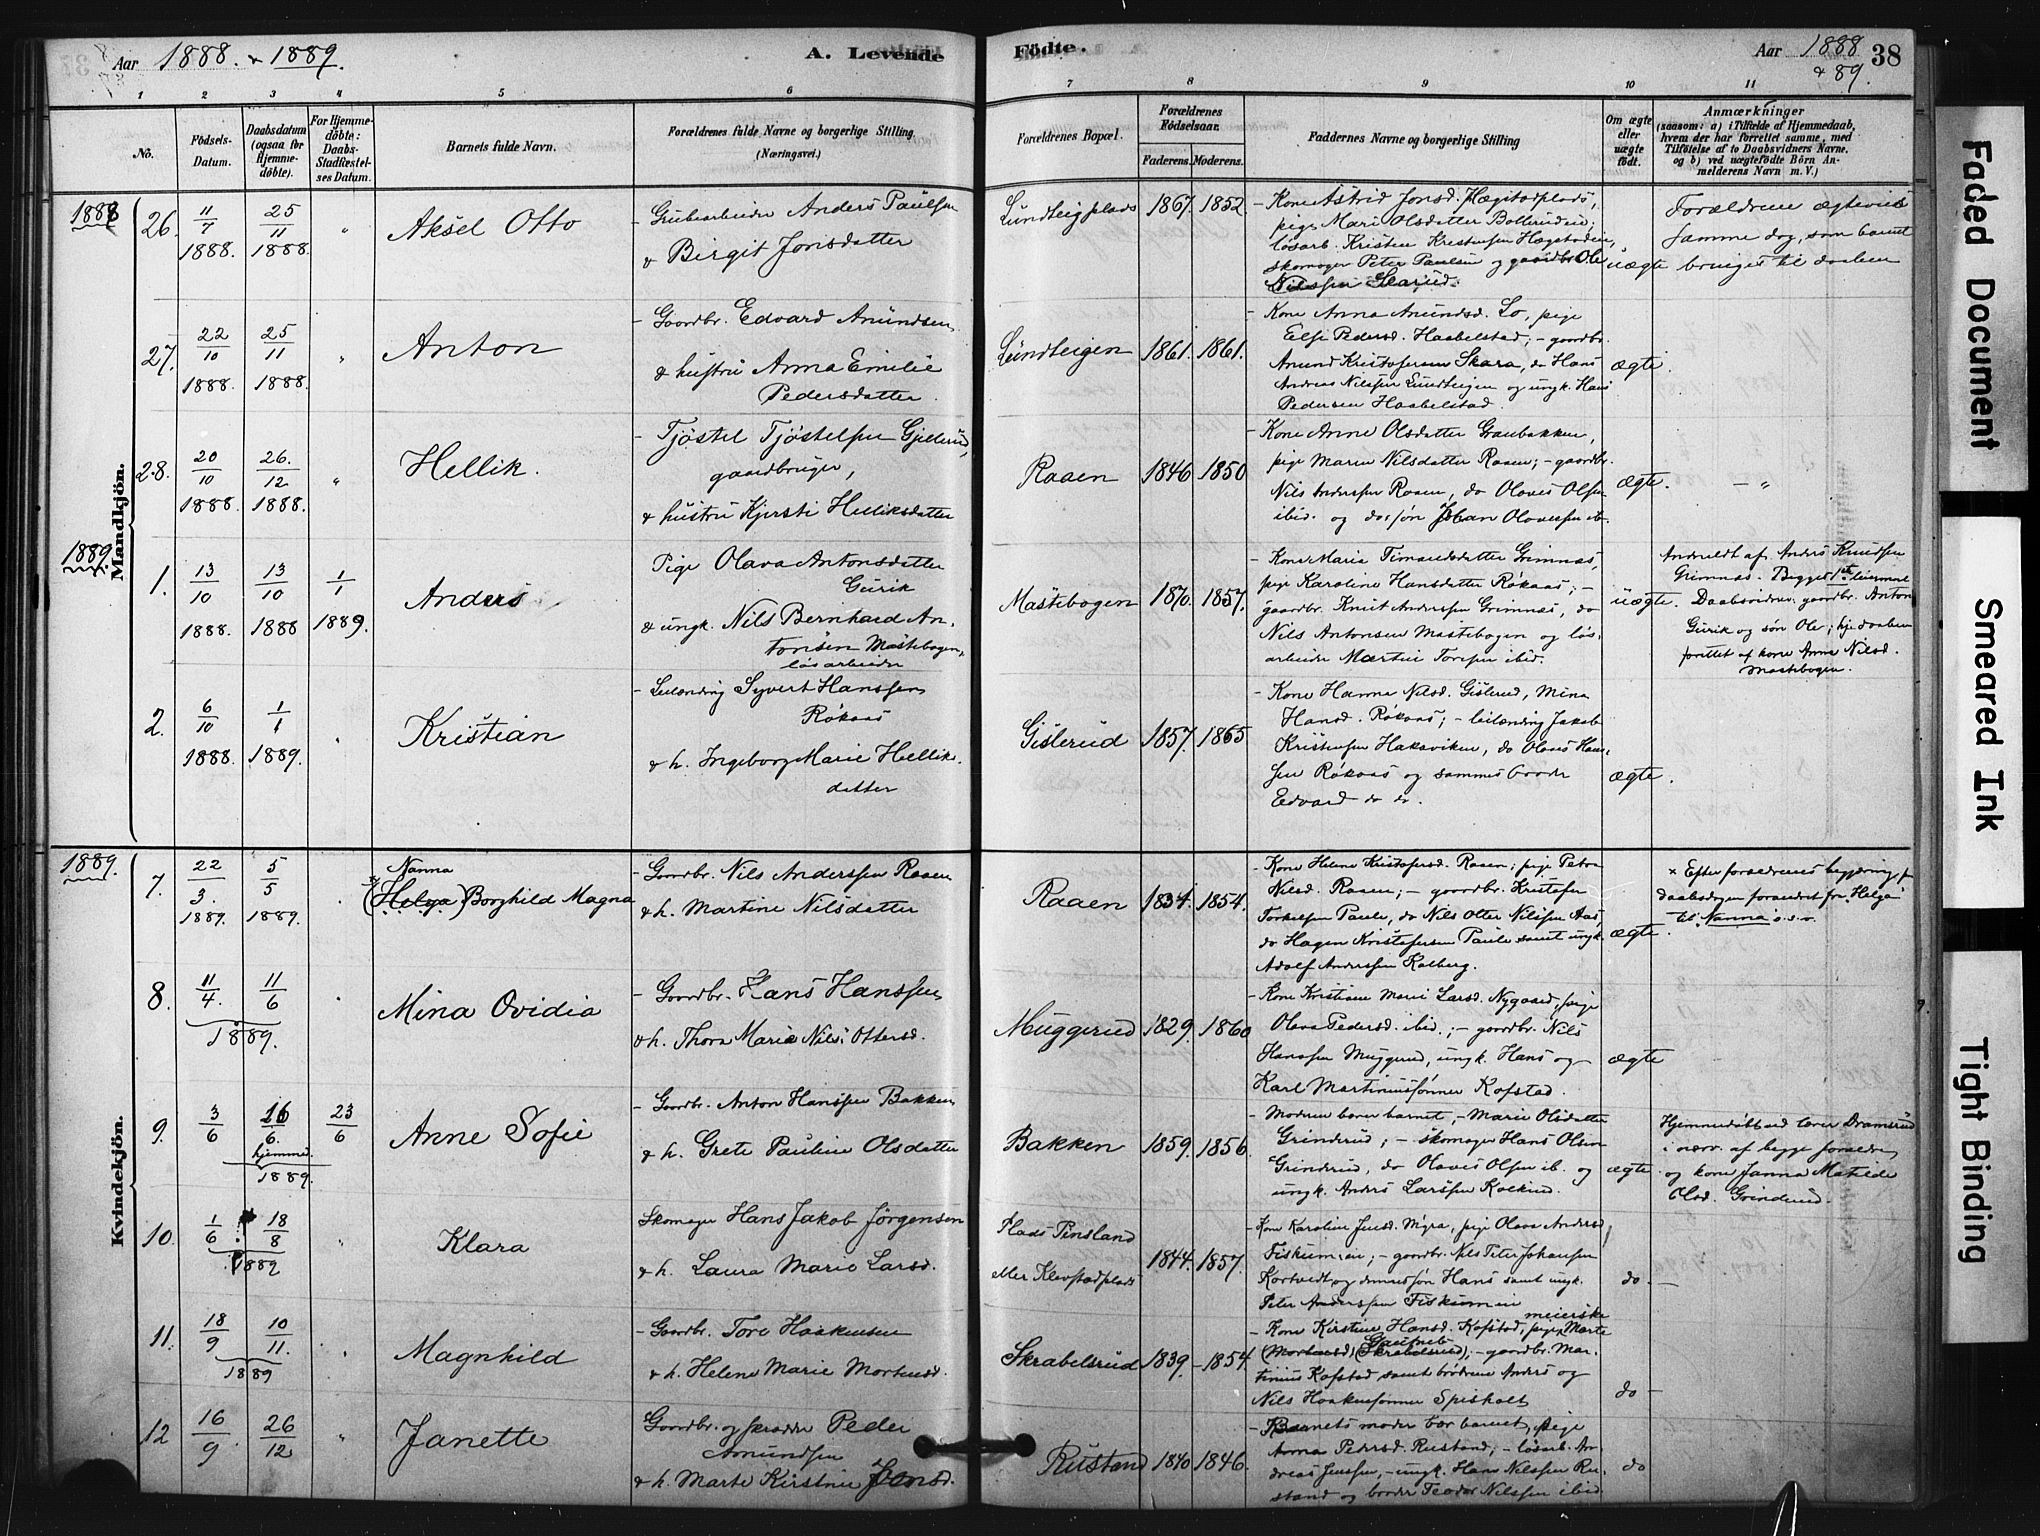 Aar 1888 & 1889.
A. Levende Födte.
Aar 1888 & 89.
38
1 2 3 4 5 6 7 8 9 10 11
No.
Födsels-Datum.
Daabsdatum (ogsaa for Hjemme-döbte).
For Hjemme-döbte: Daabs-Stadfæstel-ses Datum.
Barnets fulde Navn.
Forældrenes fulde Navne og borgerlige Stilling.
(Næringsvei.)
Forældrenes Bopæl.
Forældrenes Födselsaar.
Faderens. Moderens.
Faddernes Navne og borgerlige Stilling
Om ægte eller uægte födt.
Anmærkninger
(saasom: a) i Tilfælde af Hjemmedaab, hvem der har forrettet samme, med Tilföielse af to Daabsvidners Navne. og b) ved uægtefödte Börn Anmelderens Navn m. V.)
Mandkjön.
1888
26. 11/7 1888. 25/11 1888. "
Aksel Otto
- Grubearbeider Anders Paulsen
& Birgit Jonsdatter
Lundteigplads 1867. 1852.
- Kone Astrid Jonsd. Hægstadplads,
pige Mari Olsdatter Bollerudeie;
løsarb. Kristen Kristensen Hægstadeie,
skomager Peter Paulsen og gaardbr. Ole
Nilssen
uægte
Forældrene ægteviet
samme dag, som barnet
bringes til daaben
27. 22/10 1888. 25/11 1888. "
Anton
- Gaardbr. Edvard Amundsen
& hustru Anna Emilie
Pedersdatter.
Lundteigen 1861. 1861.
- Kone Anna Amundsd. Lo, pige
Else Pedersd. Haabelstad; - gaardbr.
Amund Kristofersen Skara, do Hans
Andreas Nilssen Lundteigen og ungk. Hans
Pedersen Haabelstad.
ægte.
28. 20/10 1888. 26./12 1888. "
Hellik.
- Tjøstel Tjøstelsen Gjellerud,
gaardbruger,
& hustru Kjersti Helliksdatter
Raaen 1846 1850
- Kone Anne Olsdatter Graubakken,
pige Maren Nilsdatter Raaen; - gaardbr.
Nils Anderssen Raaen, do Olaves Olsen
ibid. og do. søn Johan Olavessen ib.
ægte. - "
1889.
1. 13/10 1888. 13/10 1888 1/1 1889.
Anders
Pige Olava Antonsdatter
Gurik
& ungk. Nils Bernhard An-
tonsen Mastebogen,
løsarbeider
Mastebogen 1870. 1857.
- Kone Maria Timandsdatter Grimnæs,
pige Karoline Hansdatter Røkaas; -
gaardbr. Knut Anderssen Grimnæs, do
Nils Antonsen Mastebogen og løs-
arbeider Martin Toresen ibid.
uægte.
Anmeldt af Anders Knudsen
Grimnæs. Begges 1ste leiermaal
Daabsvidner: gaardbr. Anton
Gurik og søn Ole; hjedaaben
forrettet af kone Anne Nilsd.
Mastebogen.
2. 6/10 1888. 1/1 1889. "
Kristian
- Leilænding Syvert Hanssen
Røkaas
& h. Ingeborg Marie Helliks-
datter
Gislerud 1857. 1865
- Kone Hanna Nilsd. Gislerud, Mina
Hansd. Røkaas; - leilænding Jakob
Kristensen Hakavikken, do Olaus Han-
sen Røkaas og sammes broder
Edvard do do.
ægte.
Kvindekjön.
1889.
7. 22/3. 1889. 5/5 1889.
Nanna
× (Helga) Borghild Magna
- Gaardbr. Nils Anderssen Raaen
& h. Martine Nilsdatter
Raaen 1834. 1854.
- Kone Helene Kristofersd. Raaen; pige Petra
Nilsd. Raaen; - gaardbr. Kristofer
Torkelsen Paule, do Nils Otter Nilssen Aas,
do Hagen Kristofersen Paule samt ungk.
Adolf Anderssen Kolberg.
ægte.
× Efter forældrenes begjæring
daabsdagen forandret fra Helga
til Nanna o.s.v.
8. 11/4. 11/6 1889.
Mina Ovidia
- Gaardbr. Hans Hanssen
& h. Thora Marie Nils Ottersd.
Muggerud 1829. 1860
- Kone Kristiane Marie Larsd. Nygaard, pige
Olava Pedersd. ibid.; - gaardbr. Nils
Hanssen Muggerud, ungk. Hans og
Karl Martiniussønner Kopstad.
ægte
9. 3/6 16/6. hjemme. 23/6 1889.
Anne Sofie
- Gaardbr. Anton Hanssen Bakken
& h. Grete Pauline Olsdatter
Bakken 1859. 1856.
- Moderen bærer barnet, - Marie Olsdatter
Grinderud; - skomager Hans Olsen
Grinderud, do Olaves Olsen ib. og
ungk. Anders Larssen
ægte
Hjemmedøbt ved lærer Dramsrud
i nærv. af begge forældre
og kone Janna Matilde
Olsd. Grinderud.
10. 1/6. 18/8 1889 "
Klara
Skomager Hans Jakob Jørgensen
& h. Laura Marie Larsd.
Plads Pinsland
eller Klevstadplads 1844. 1857.
- Kone Karoline Jensd. Myra, pige Olava Andersd.
Fiskumeie; - gaardbr. Nils Peter Johansen
Kortvedt og dennes søn Hans samt ungk.
Peter Anderssen Fiskumeie
do -
11. 18/9 10/11. 1889
Magnhild
- Gaardbr. Tore Haakensen
& h. Helene Marie Mortensd.
Skrabelsrud 1839. 1854
meierske
- Kone Kirstine Hansd. Kopstad, pige Marte
(Mortensd) (Skrabelsrud); - gaardbr. Mar-
tinius Kopstad samt brødrene Anders og
Nils Haakensønner Spisholt
do -
12 16/9. 26/12 "
Janette
Gaardbr. og skrædder Peder
Amundsen
& h. Marte Kirstine Jensd.
Rustand 1840 1846.
- Barnets moder bar barnet, pige
Anna Pedersd. Rustand; - løsarb. An-
dreas Jenssen, - ungk. Hans Nilssen Ru-
stand og broder Teodor Nilssen ibid.
do
Faded Document
Smeared Ink
Tight Binding